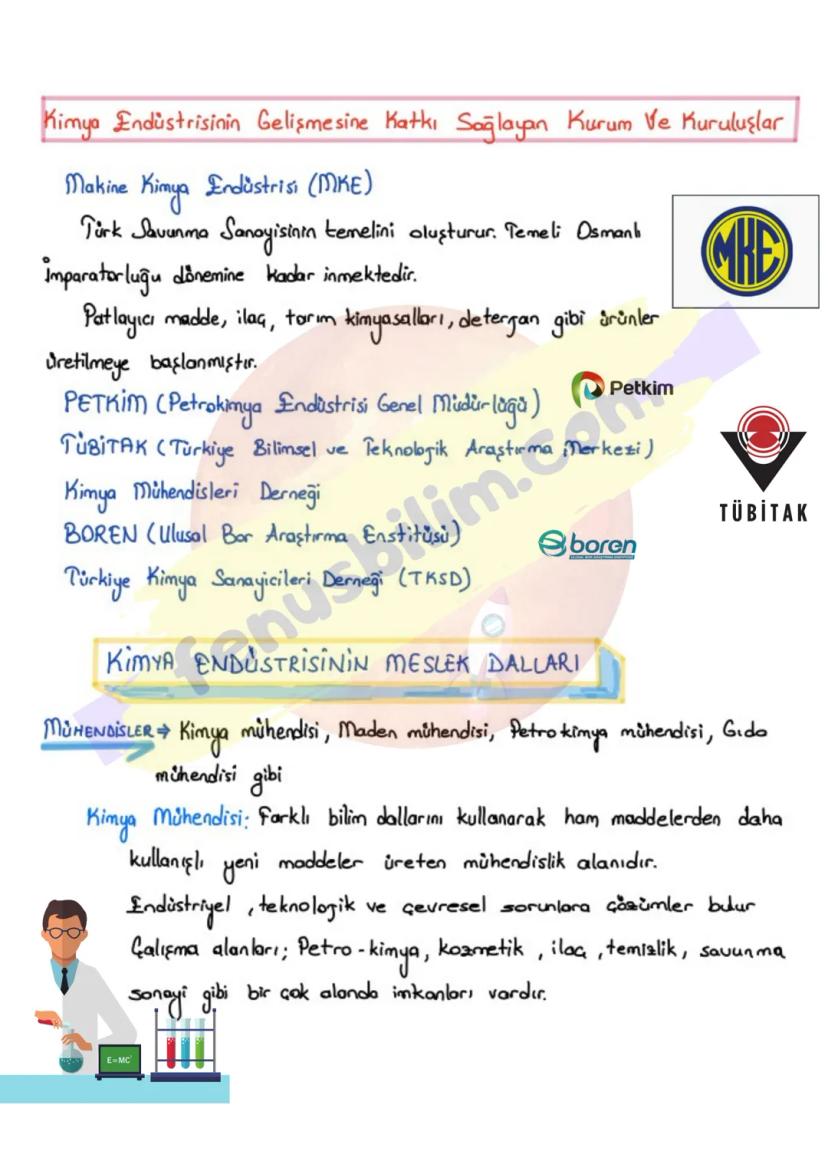 Kimya Endüstrisinin Gelişmesine Katkı Sağlayan Kurum Ve Kuruluşlar
Makine Kimya Endüstrisi (MKE)
Türk Savunma Sanayisinin temelini oluşturur. Temeli Osmanlı
İmparatorluğu dönemine kadar inmektedir.
MKE
Patlayıcı madde, ilaç, tarım kimyasalları, deterjan gibi ürünler
üretilmeye başlanmıştır.
PETKİM (Petrokimya Endüstrisi Genel Müdürlüğü)
Petkim
TÜBİTAK (Türkiye Bilimsel ve Teknolojik Araştırma Merkezi)
Kimya Mühendisleri Derneği
TÜBİTAK
BOREN (Ulusal Bor Araştırma Enstitüsü)
boren
ULUSAL BOR ARAŞTIRMA ENSTİTÜSÜ
Türkiye Kimya Sanayicileri Derneği (TKSD)
fenusbilim.com
KİMYA ENDÜSTRİSİNİN MESLEK DALLARI
MÜHENDİSLER⇒ Kimya mühendisi, Maden mühendisi, Petrokimya mühendisi, Gıda
mühendisi gibi
Kimya Mühendisi: Farklı bilim dallarını kullanarak ham maddelerden daha
kullanışlı yeni maddeler üreten mühendislik alanıdır.
Endüstriyel , teknolojik ve çevresel sorunlara çözümler bulur
Çalışma alanları; Petro-kimya, kozmetik , ilaç , temizlik, savunma
sanayi gibi bir çok alanda imkanları vardır.
E=MC²